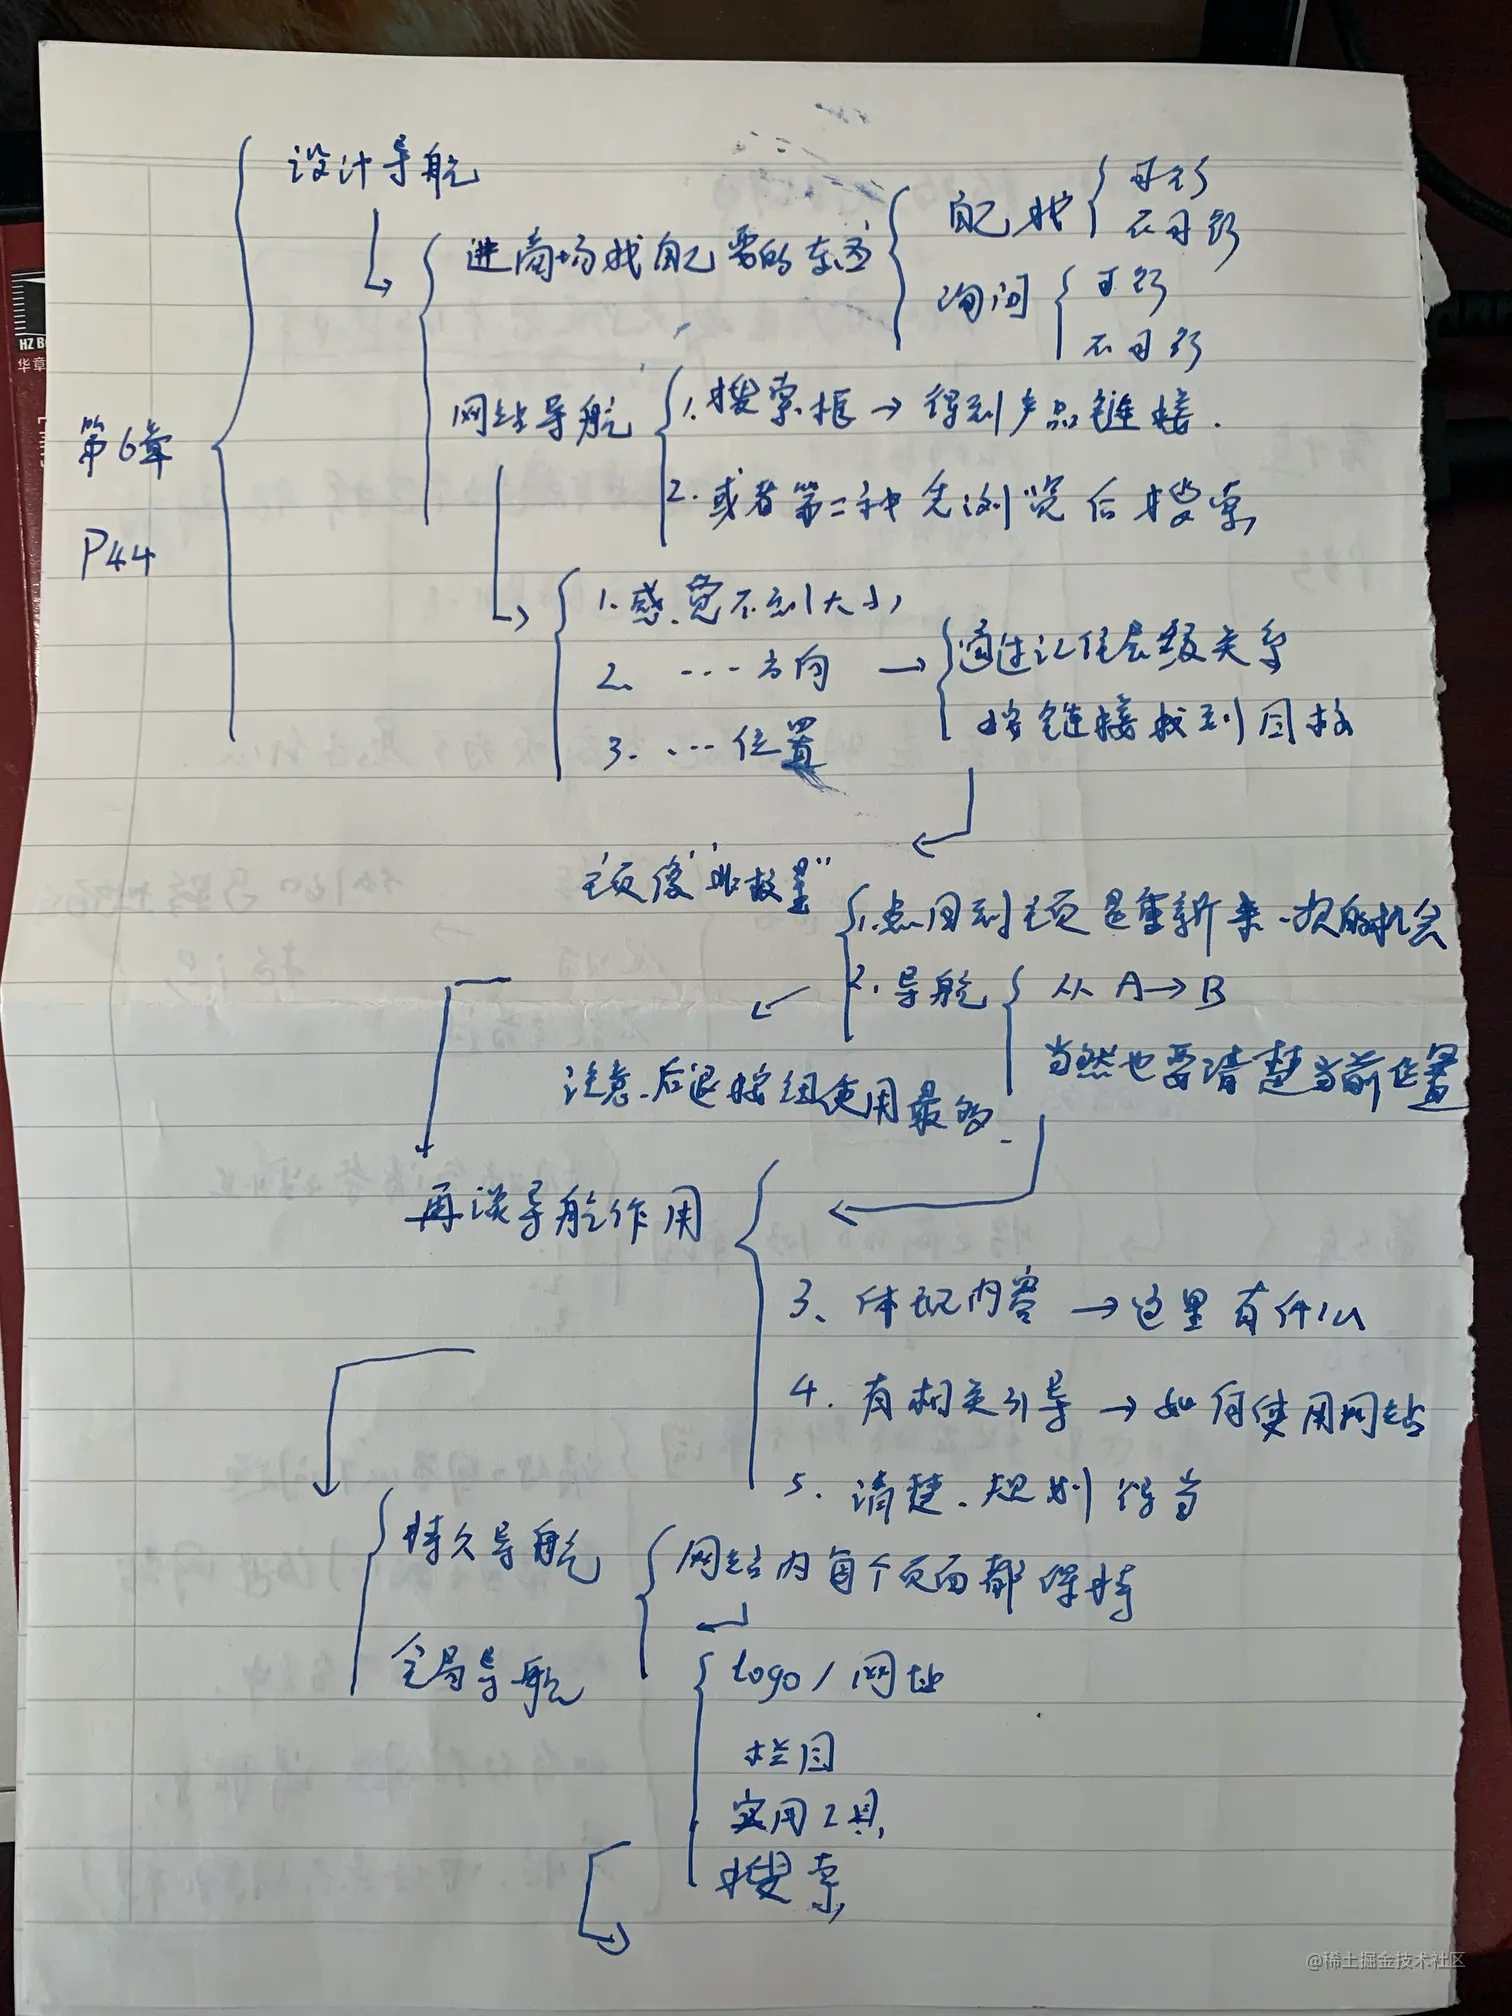 设计导航
自己找
可行
不可行
进商场找自己要的东西
询问
可行
不可行
第6章
P44
网站导航
1.搜索框→得到产品链接.
2.或者第二种先浏览后搜索
1.感觉不到大小
2. …方向 →
通过记住层级关系
3. …位置
按链接找到目标
主页像"北极星"
1.点回到主页是重新来一次的机会
2.导航
从A→B
当然也要清楚当前位置
注意.后退按钮使用最多.
再谈导航作用
3、体现内容 →这里有什么
4.有相关引导→如何使用网站
5.清楚.规划得当
持久导航
网站内每个页面都保持
全局导航
logo/网址
栏目
实用工具
搜索
HZ B
华章
@稀土掘金技术社区